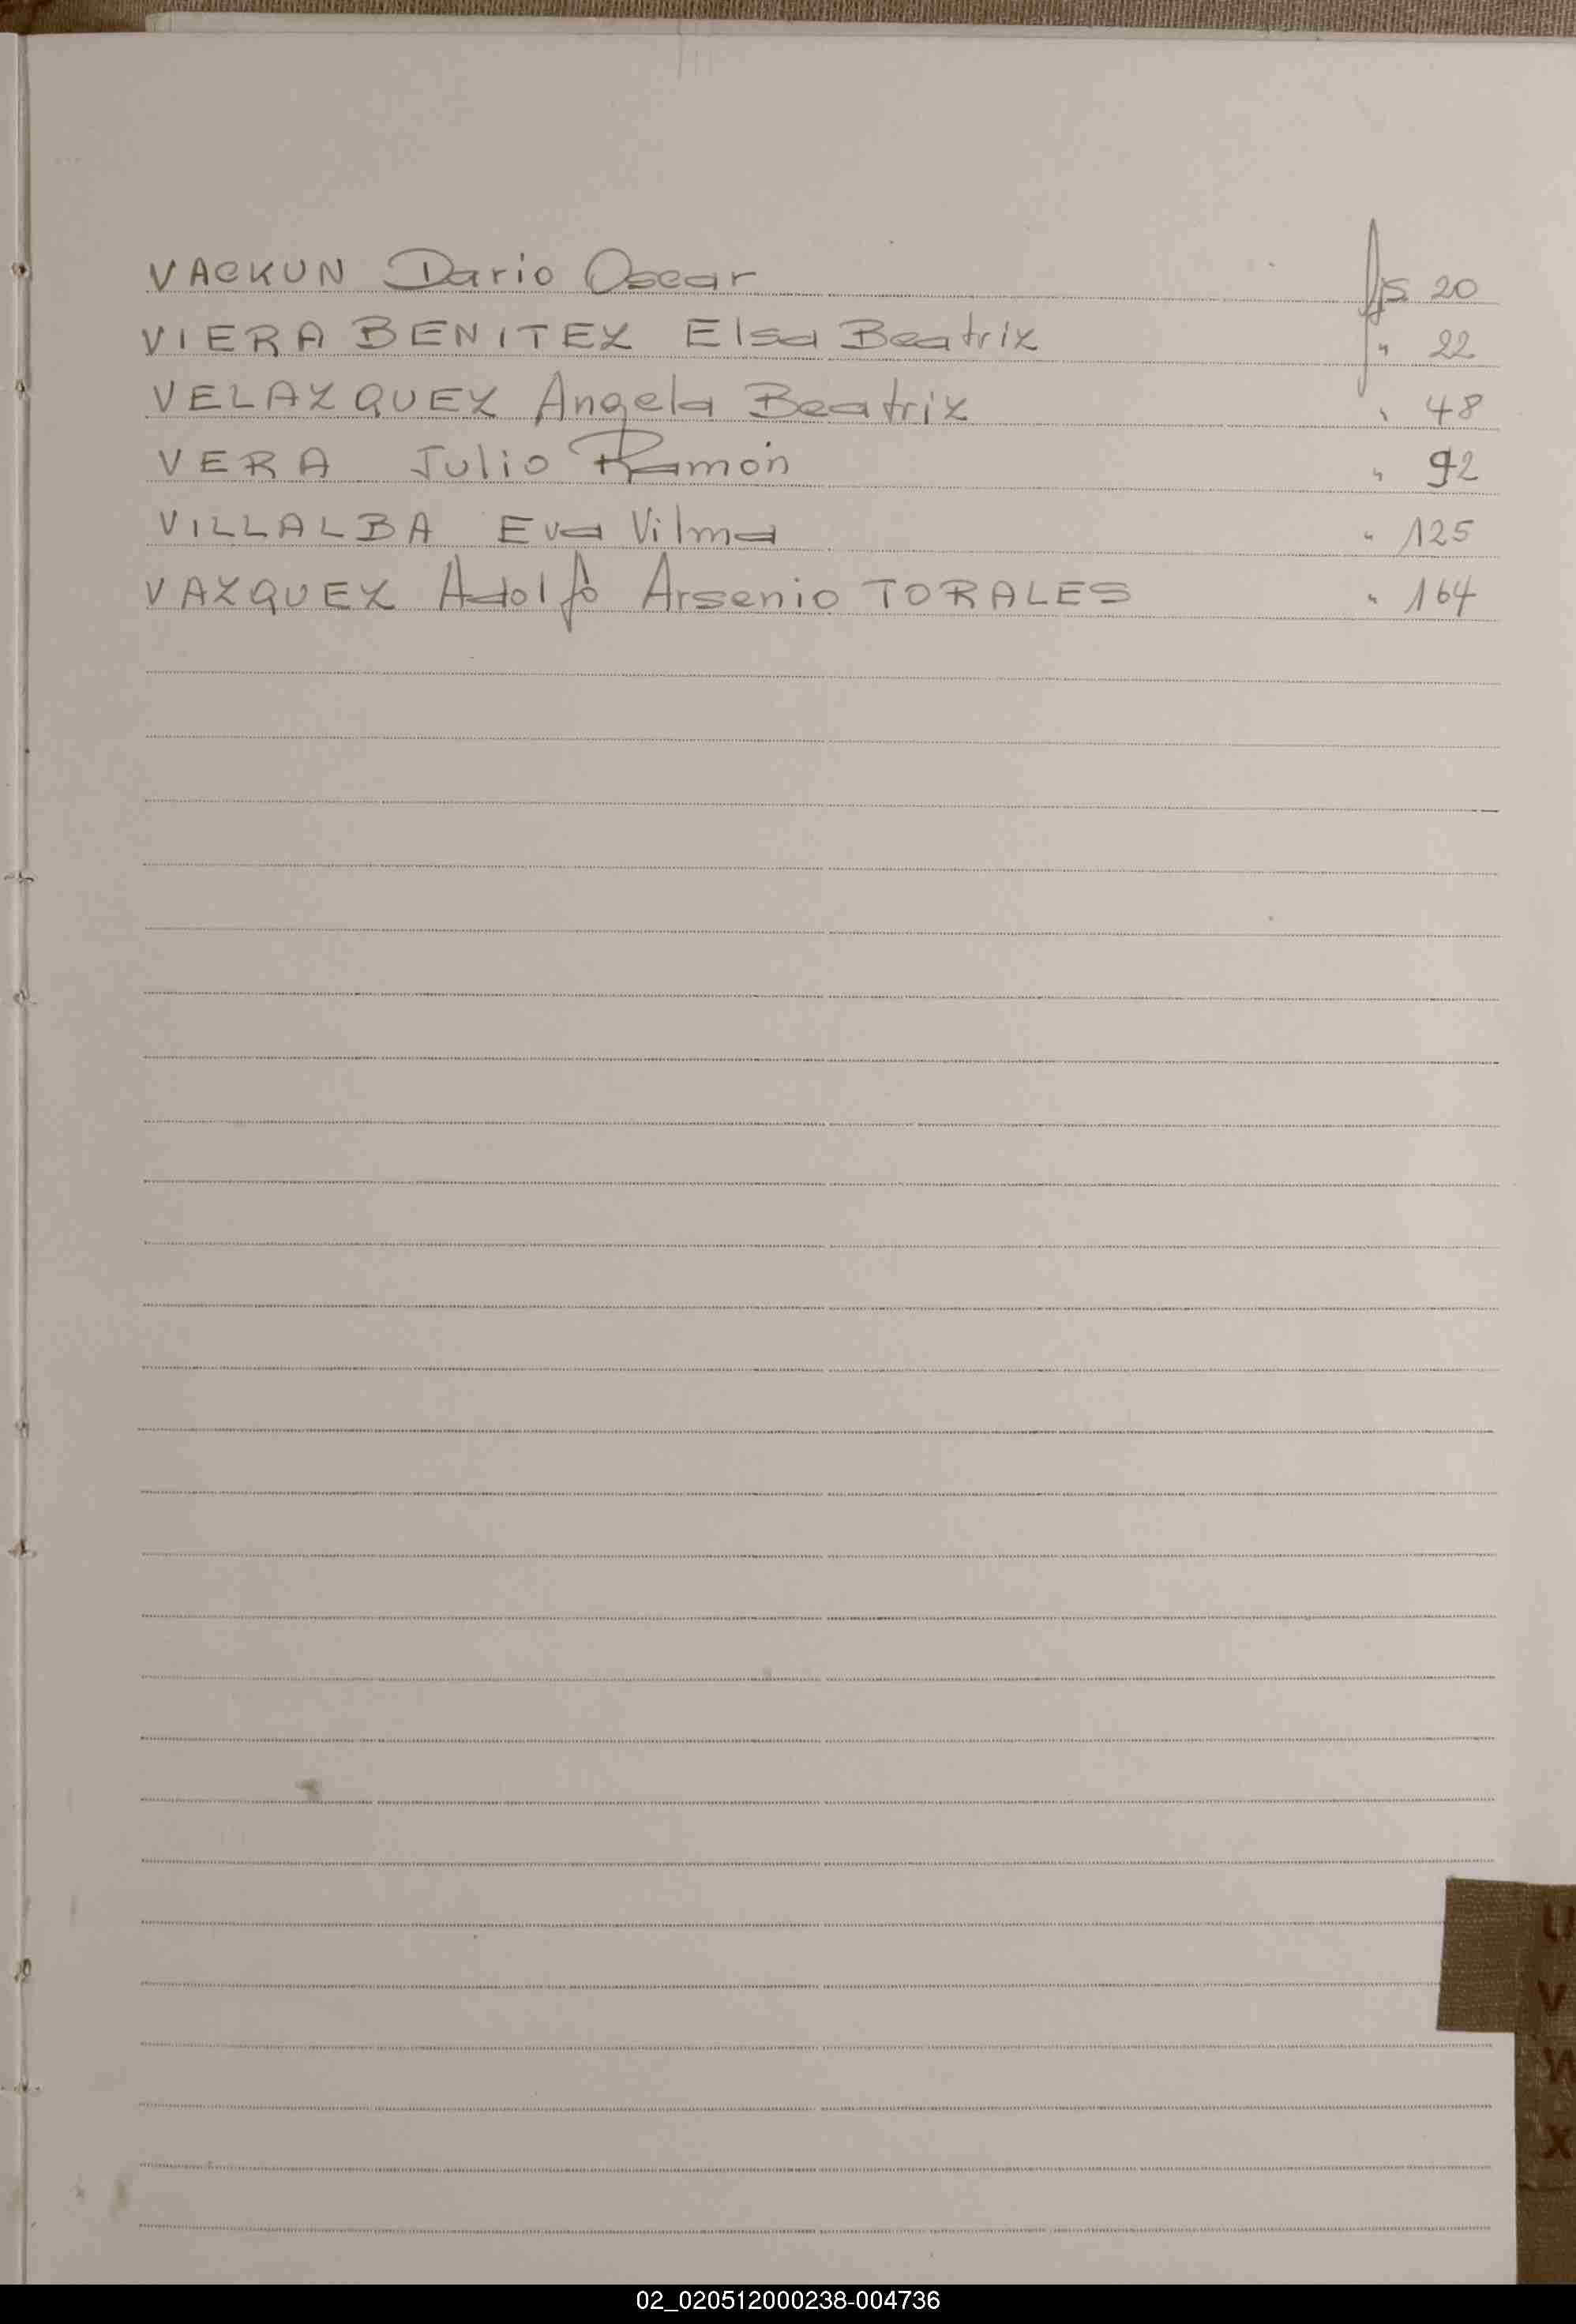 VACKUN Dario Oscar fjs 20
VIERA BENITEZ Elsa Beatriz " 22
VELAZQUEZ Angela Beatriz " 48
VERA Julio Ramón " 92
VILLALBA Eva Vilma " 125
VAZQUEZ Adolfo Arsenio TORALES " 164
U
V
W
X
02_020512000238-004736